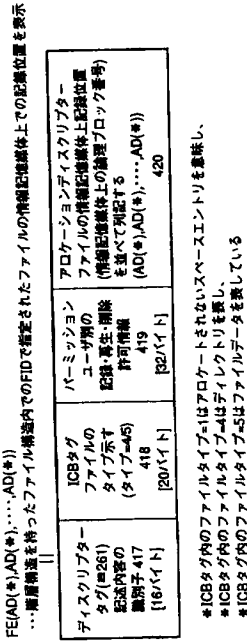 FE(AD(*),AD(*),‥‥,AD(*))
…階層構造を持ったファイル構造内でのFIDで指定されたファイルの情報記憶媒体上での記録位置を表示
ディスクリプター
タグ(=261)
記述内容の
識別子 417
[16バイト]
ICBタグ
ファイルの
タイプ示す
(タイプ=4/5)
418
[20バイト]
パーミッション
ユーザ別の
記録・再生・削除
許可情報
419
[32バイト]
アロケーションディスクリプター
ファイルの情報記憶媒体上記録位置
(情報記憶媒体上の論理ブロック番号)
を並べて列記する
(AD(*),AD(*),‥‥,AD(*))
420
*ICBタグ内のファイルタイプ=1はアロケートされないスペースエントリを意味し、
*ICBタグ内のファイルタイプ=4はディレクトリを表し、
*ICBタグ内のファイルタイプ=5はファイルデータを表している